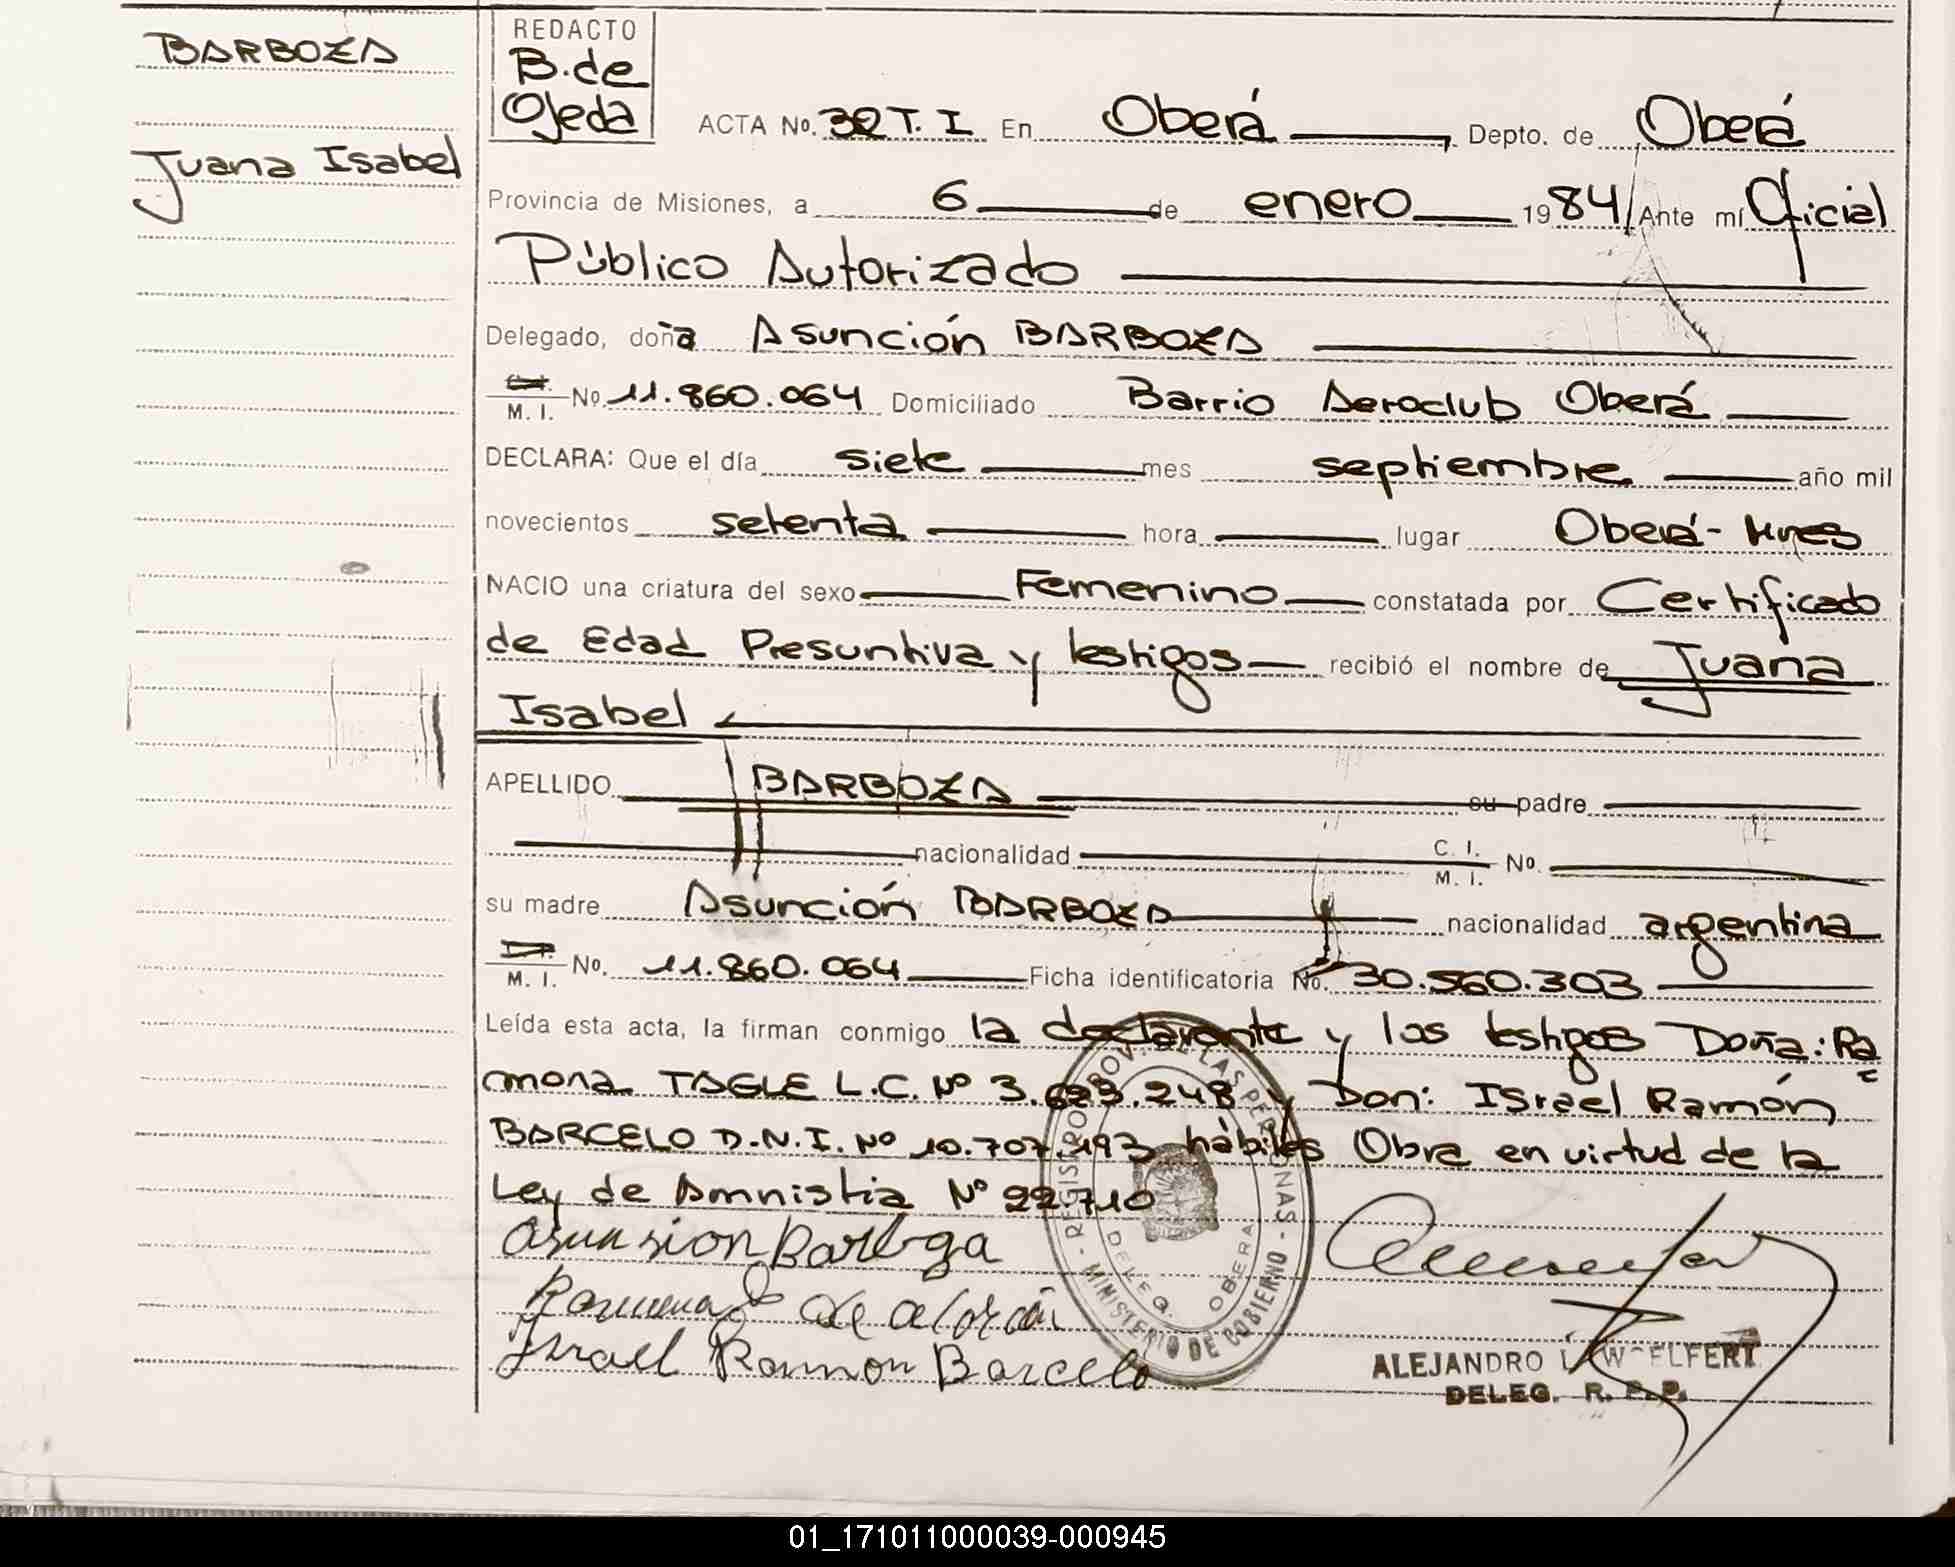 BARBOZA
Juana Isabel
REDACTO
B. de
Ojeda
ACTA No. 32 T. I En Oberá Depto. de Oberá
Provincia de Misiones, a 6 de enero 1984 Ante mí Oficial
Público Autorizado
Delegado, doña Asunción BARBOZA
M. I. No. 11.860.064 Domiciliado Barrio Aeroclub Oberá
DECLARA: Que el día siete mes septiembre año mil
novecientos setenta hora lugar Oberá - Mnes
NACIO una criatura del sexo Femenino constatada por Certificado
de Edad Presuntiva y testigos recibió el nombre de Juana
Isabel
APELLIDO BARBOZA su padre
nacionalidad C. I. M. I. No.
su madre Asunción BARBOZA nacionalidad argentina
M. I. No. 11.860.064 Ficha identificatoria No. 30.560.303
Leída esta acta, la firman conmigo la declarante y los testigos Doña: Ra
mona TAGLE L.C. Nº 3.623.248 y Don: Israel Ramón
BARCELO D.N.I. Nº 10.707.193 hábiles Obra en virtud de la
Ley de Amnistia Nº 22.710
Asunsion Barboza
Ramona de
Israel Ramon Barcelo
REGISTRO PROV. DE LAS PERSONAS - MINISTERIO DE GOBIERNO -
DELEG. OBERA
ALEJANDRO WOELFERT
DELEG. R. P. P.
01_171011000039-000945